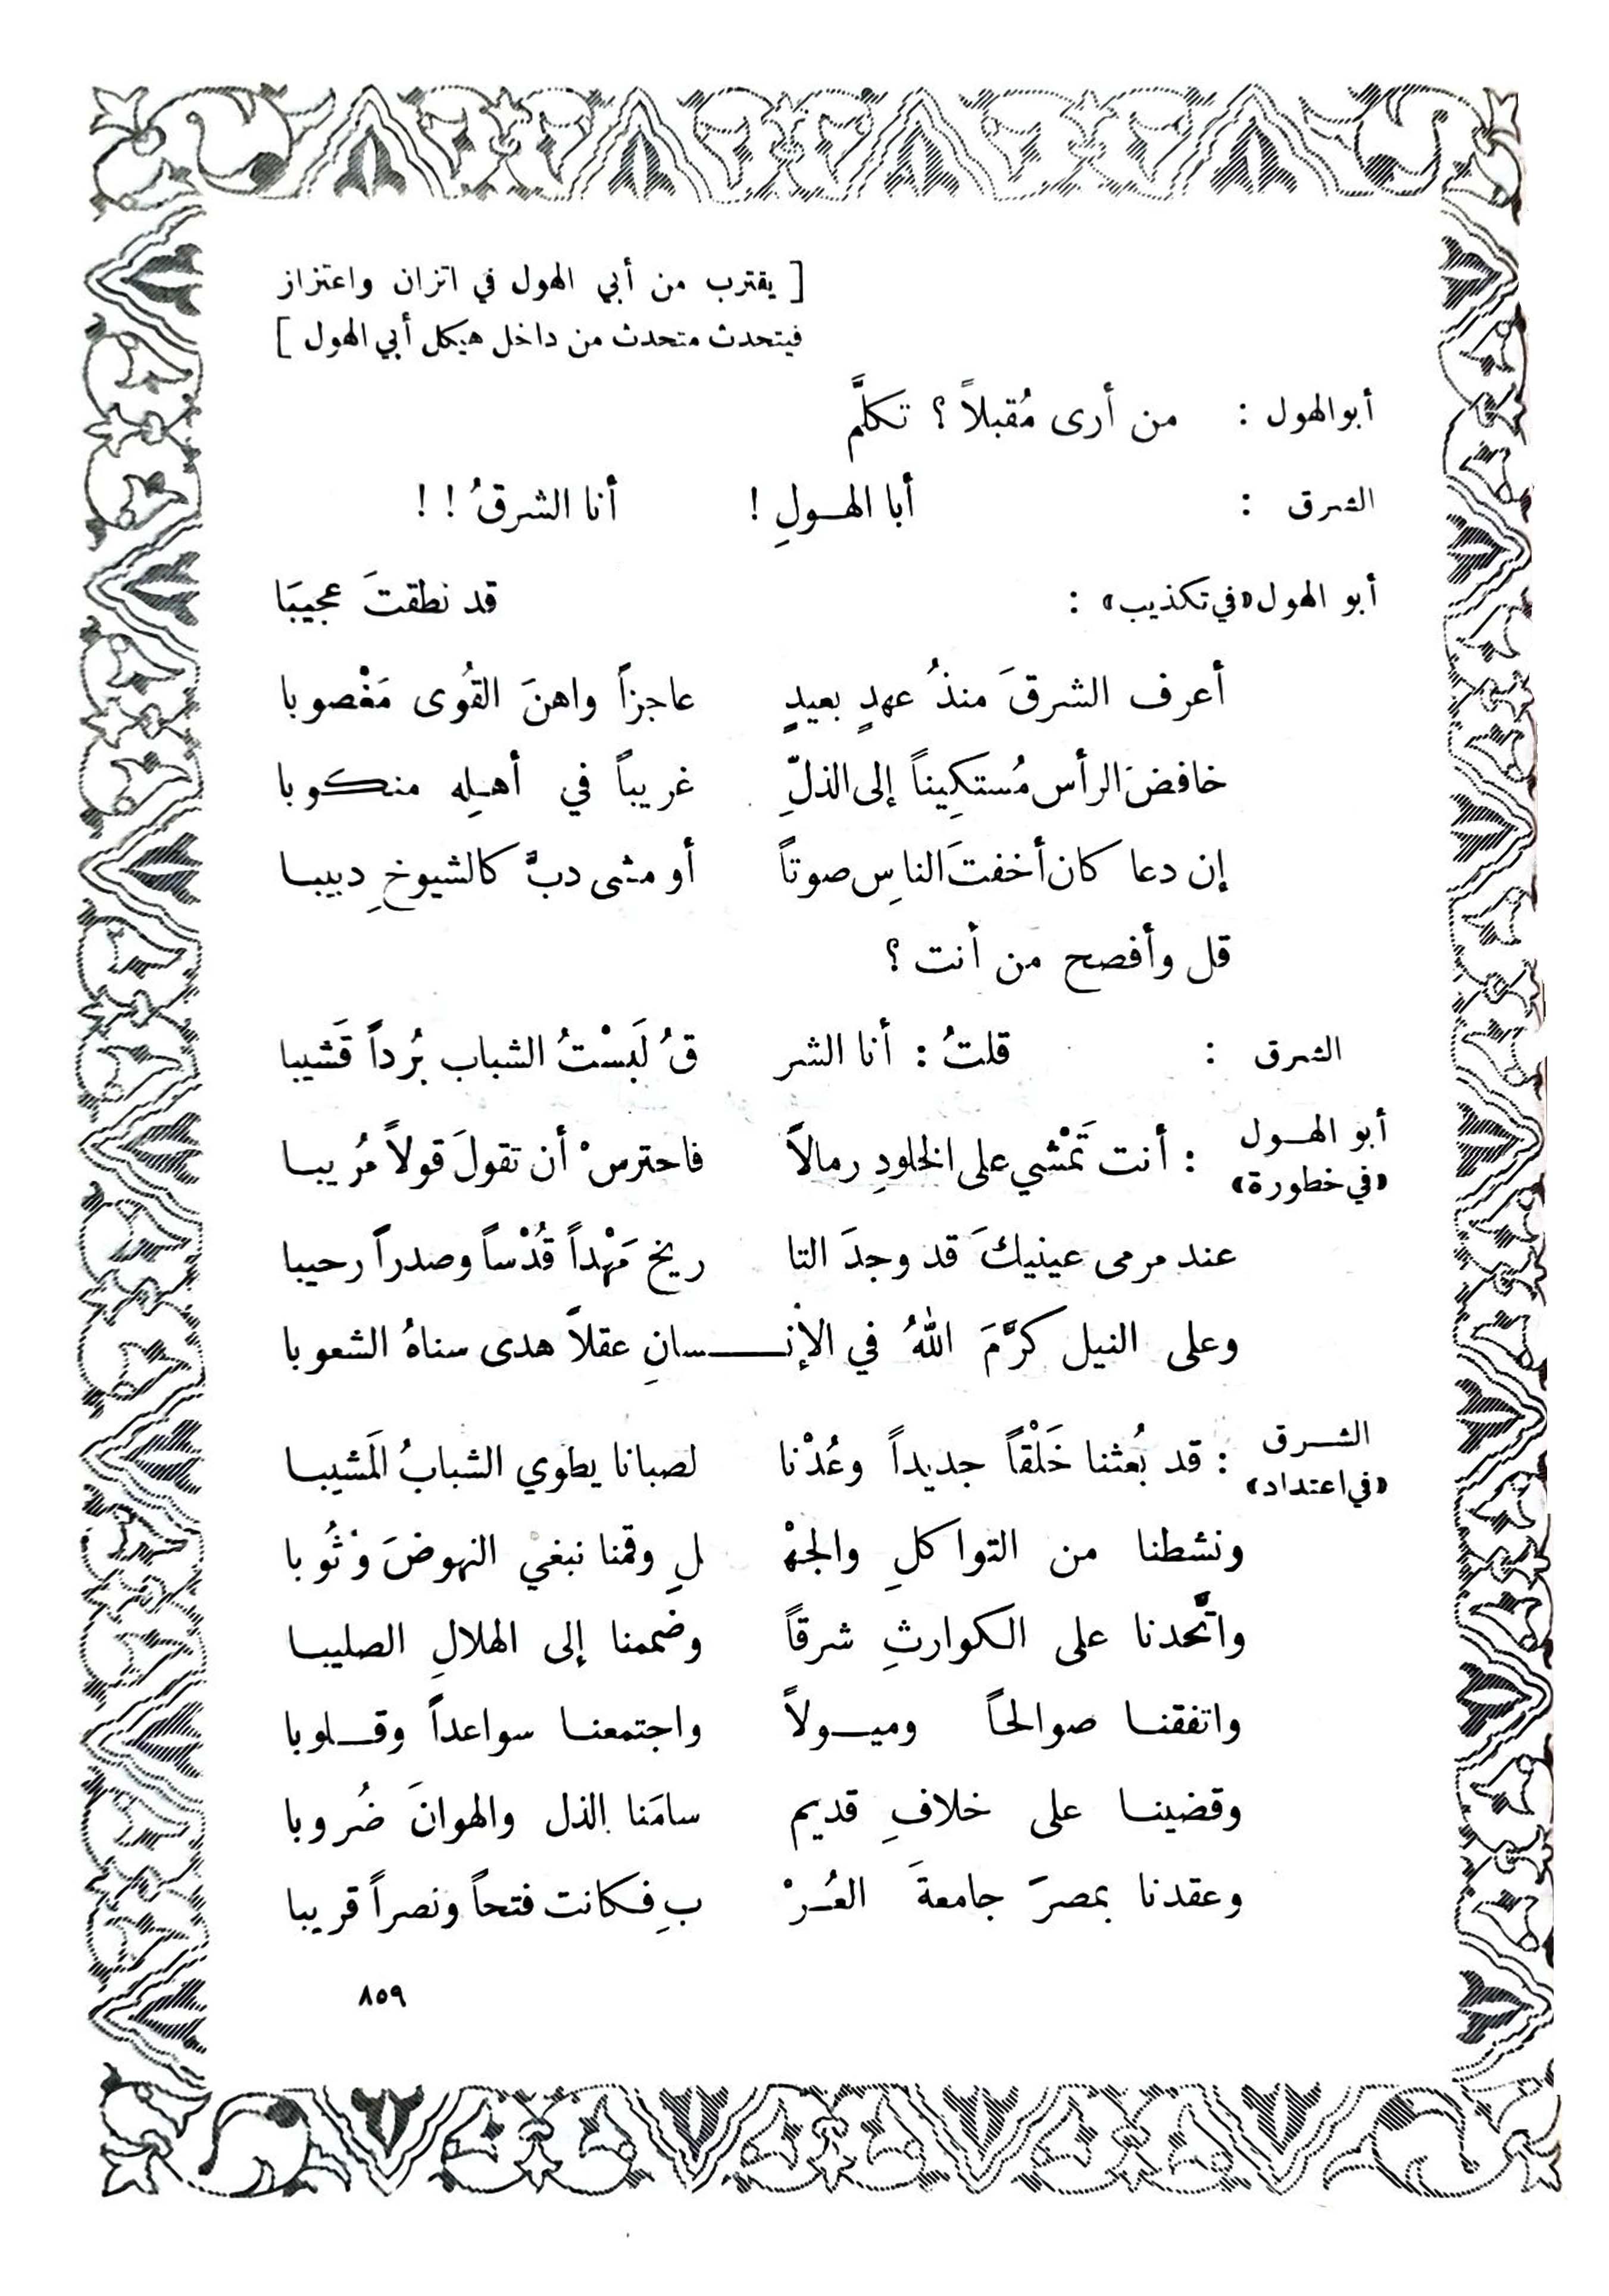 [ يقترب من أبي الهول في اتزان واعتزاز
فيتحدث متحدث من داخل هيكل أبي الهول ]
أبوالهول : من أرى مُقبلاً ؟ تكلَّم
الشرق : أبا الهـولِ ! أنا الشرقُ ! !
أبو الهول «في تكذيب» : قد نطقتَ عجيبَا
أعرف الشرقَ منذُ عهدٍ بعيدٍ عاجزاً واهنَ القُوى مَغْصوبا
خافضَ الرأس مُستكِيناً إلى الذلِّ غريباً في أهـلِه منكوبا
إن دعا كان أخفتَ الناسِ صوتاً أو مشى دبَّ كالشيوخِ دبيبـا
قل وأفصح من أنت ؟
الشرق : قلتُ : أنا الشر قُ لَبِسْتُ الشباب بُرداً قَشيبا
أبو الهـول : أنت تَمْشي على الخلودِ رمالاً فاحترسْ أن تقولَ قولاً مُريبـا
«في خطورة»
عند مرمى عينيكَ قد وجدَ التا ريخ مَهْداً قُدْساً وصدراً رحيبا
وعلى النيل كرَّمَ اللهُ في الإنـــسانِ عقلاً هدى سناهُ الشعوبا
الشـرق : قد بُعثنا خَلْقاً جديداً وعُدْنا لصبانا يطوي الشبابُ المَشيبـا
«في اعتداد»
ونشطنا من التواكلِ والجهْ لِ وقمنا نبغي النهوضَ وُثُوبا
واتَّحدنا على الكوارثِ شرقاً وضممنا إلى الهلالِ الصليبـا
واتفقنـا صوالحاً وميـولاً واجتمعنـا سواعداً وقـلوبا
وقضينـا على خلافٍ قديم سامَنا الذل والهوانَ ضُروبا
وعقدنا بمصرَ جامعةَ العُـرْ بِ فكانت فتحاً ونصراً قريبا
٨٥٩